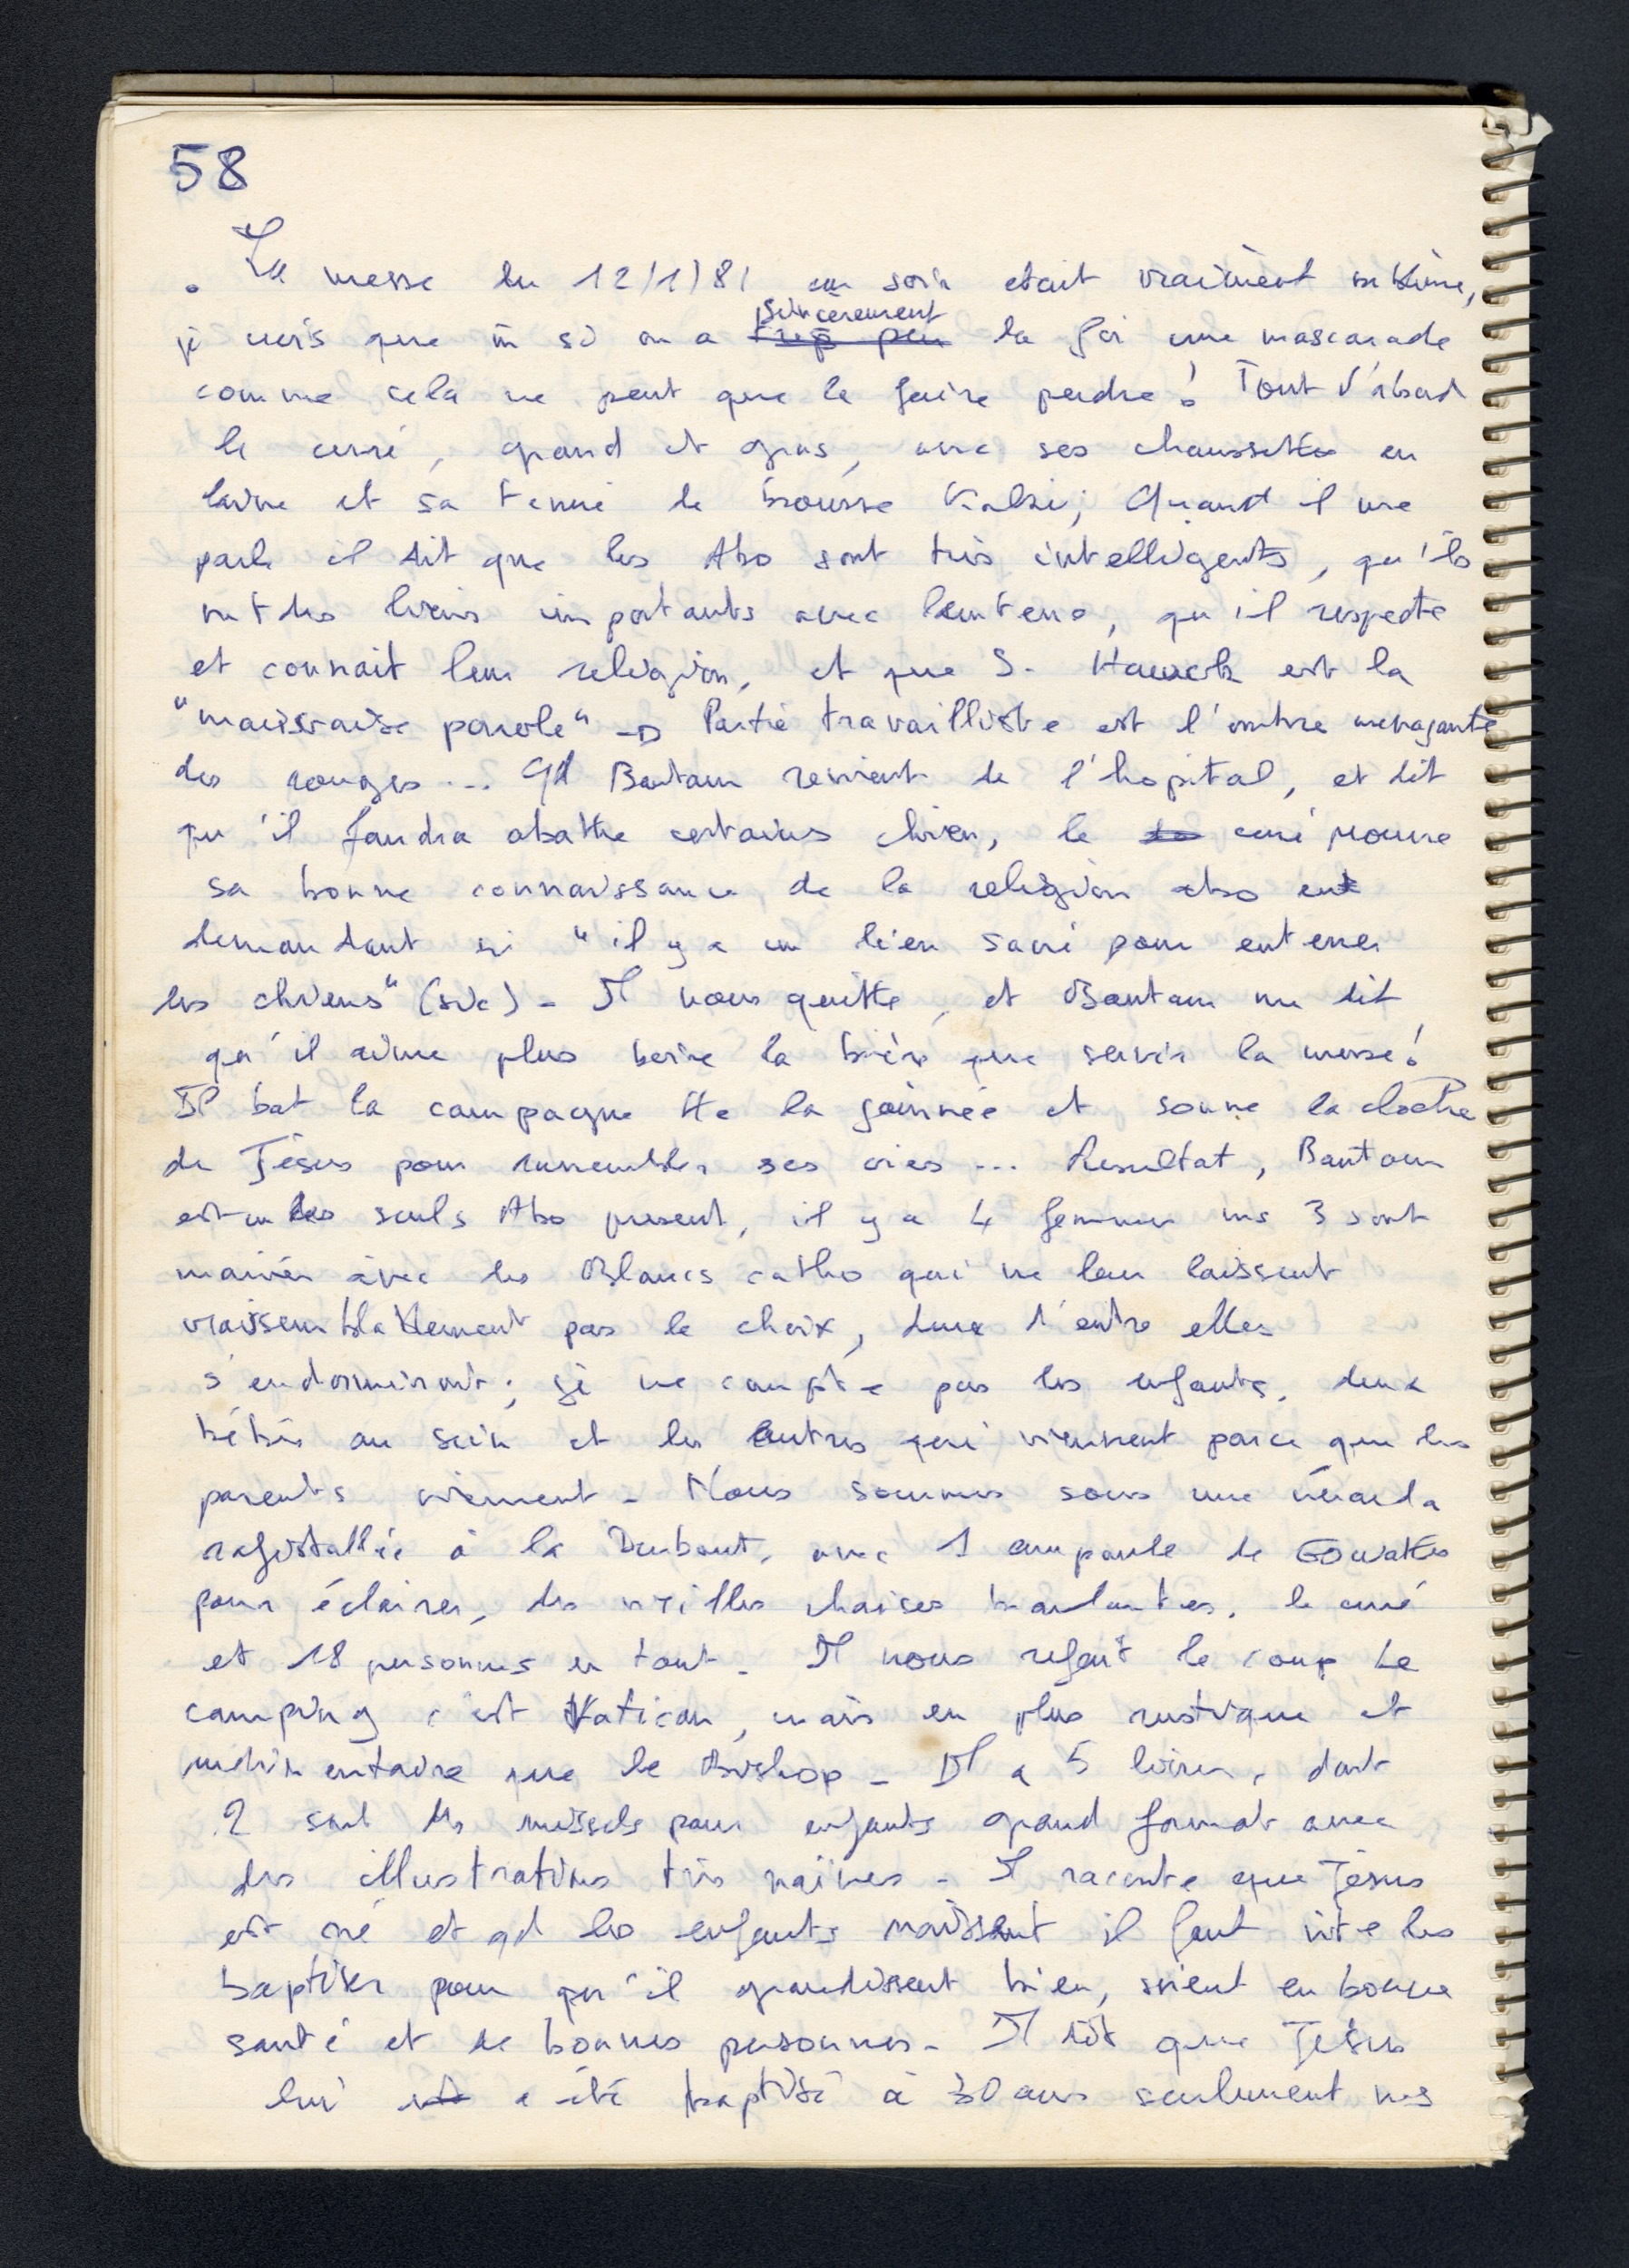 58
. La messe du 12/1/81 au soir etait vraiment sublime,
sincerement
je crois que m̄ si on a trop peu la foi une mascarade
comme cela ne peut que la faire perdre! Tout d'abord
le curé, grand et gros, avec ses chaussettes en
laine et sa tenue de brousse Kaki; Quand il me
parle il dit que les Abo sont très intelligents, qu'ils
ont des liens importants avec leur terre, qu'il respecte
et connait leur religion, et que S. Hawck est la
"mauvaise parole" → Partie travailliste est l'ombre menaçante
des rouges... Qd Bantam revient de l'hopital, et dit
qu'il faudra abattre certains chien, le curé prouve
sa bonne connaissance de la religion abo en
demandant si "il y a un lieu sacré pour enterrer
les chiens" (sic) - Il nous quitte, et Bantam me dit
qu'il aime plus boire la bière que servir la messe!
Il bat la campagne tte la journée et sonne la cloche
de Jésus pour rassembler ses oies... Resultat, Bantam
est un des seuls Abo present, il y a 4 femmes ms 3 sont
mariées avec des Blancs catho qui ne leur laissent
vraisemblablement pas le choix, deux d'entre elles
s'endormiront; je ne compte pas les enfants, deux
bébés au sein et les autres qui viennent parce que les
parents viennent - Nous sommes sous une véranda
rafistallée à la Dubout, avec 1 ampoule de 60 wattes
pour éclairer, des vieilles chaises branlantes, le curé
et 18 personnes en tout - Il nous refait le coup de
camping c'est Vatican, mais en plus rustique et
rudimentaire que le Bishop - Il a 5 livres, dont
2 sont des missels pour enfants grand format avec
des illustrations très naïves - Il raconte que Jésus
est né et qd les enfants naissent il faut vite les
baptiser pour qu'il grandissent bien, soient en bonne
santé et de bonnes personnes - Il dit que Jésus
lui a été baptisé à 30 ans seulement ms